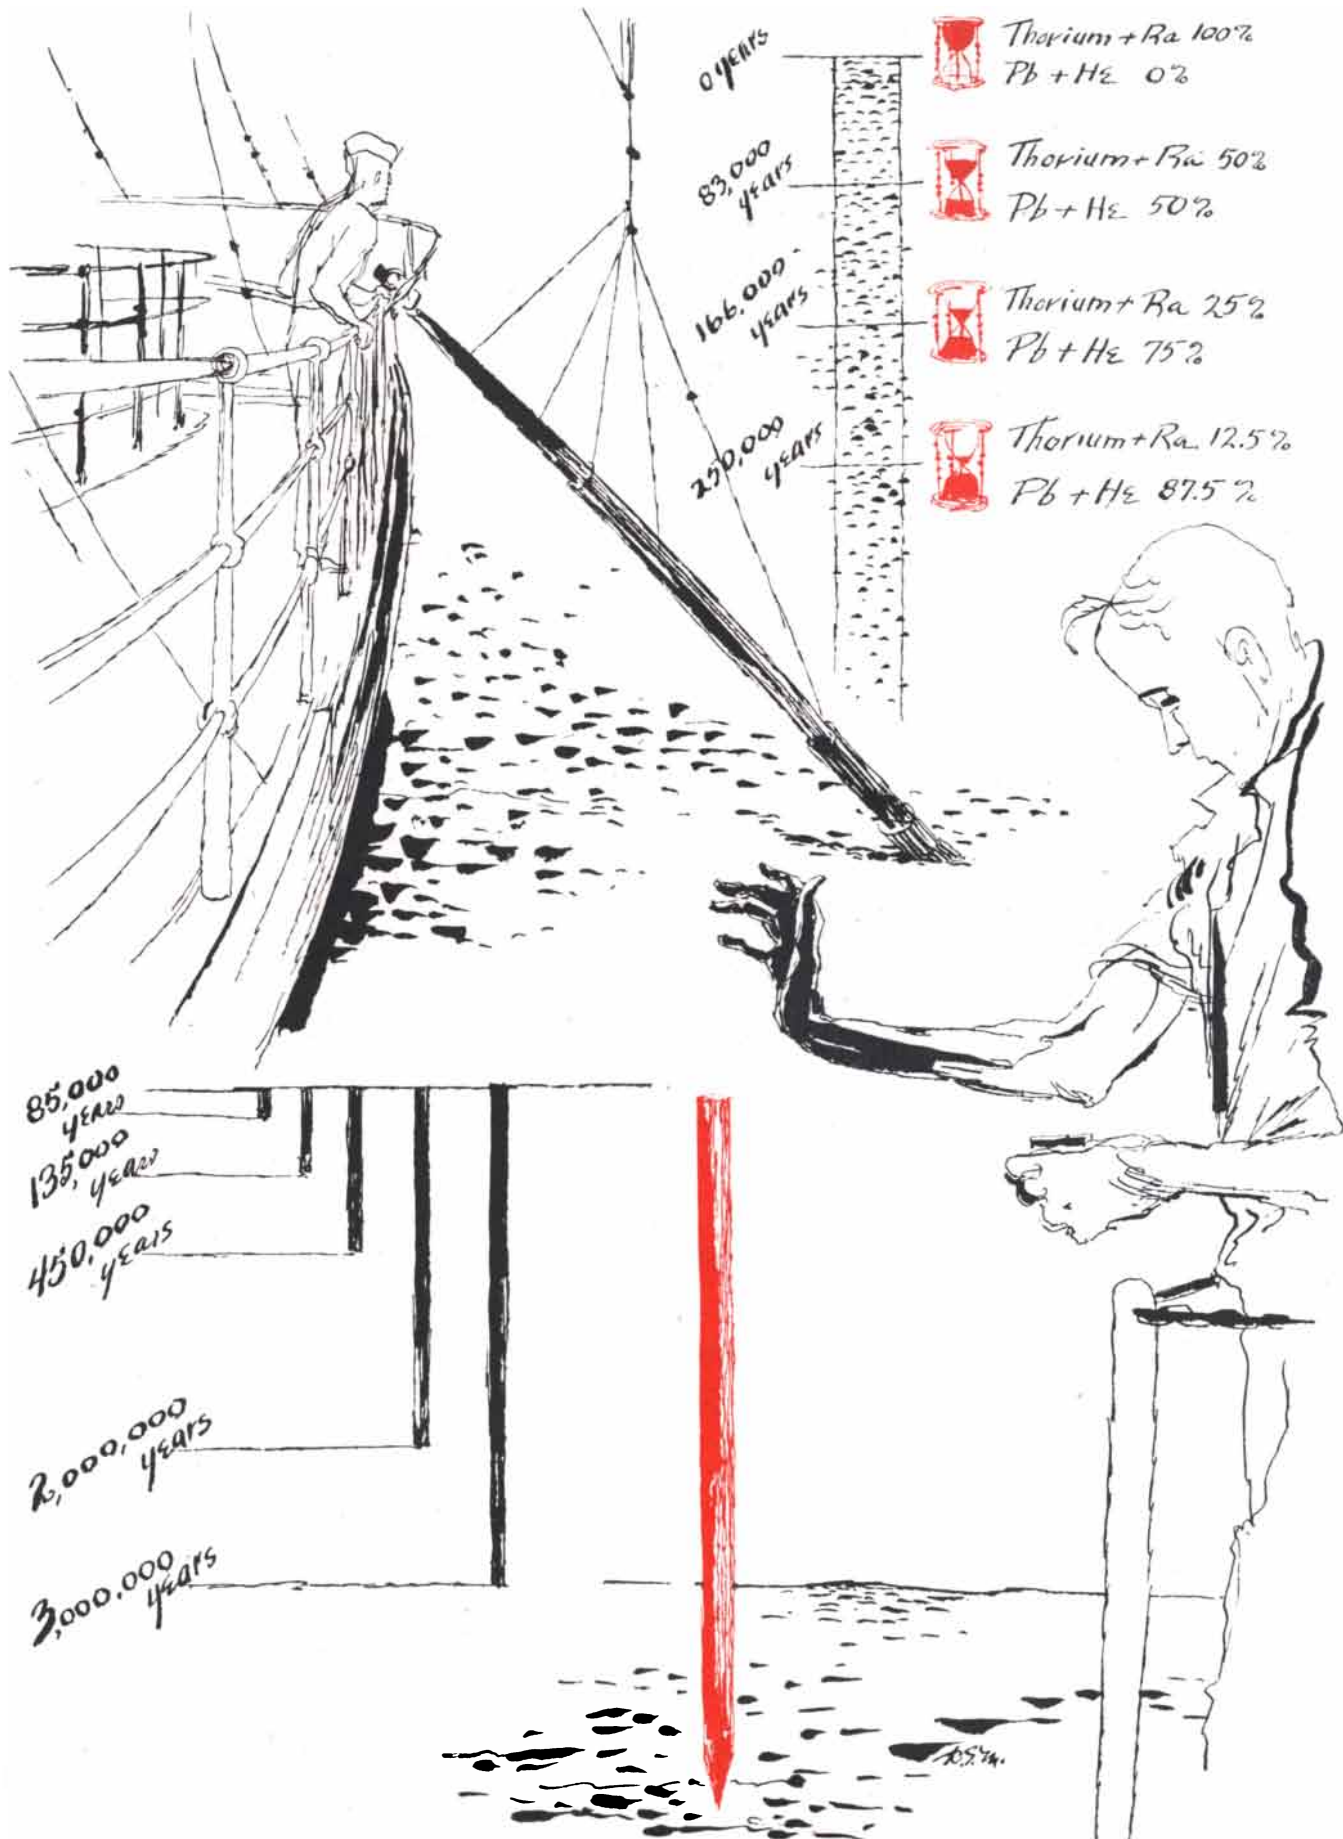 0 years
Thorium + Ra 100%
Pb + He 0%
83,000
years
Thorium + Ra 50%
Pb + He 50%
166,000
years
Thorium + Ra 25%
Pb + He 75%
250,000
years
Thorium + Ra 12.5%
Pb + He 87.5%
85,000
years
135,000
years
450,000
years
2,000,000
years
3,000,000
years